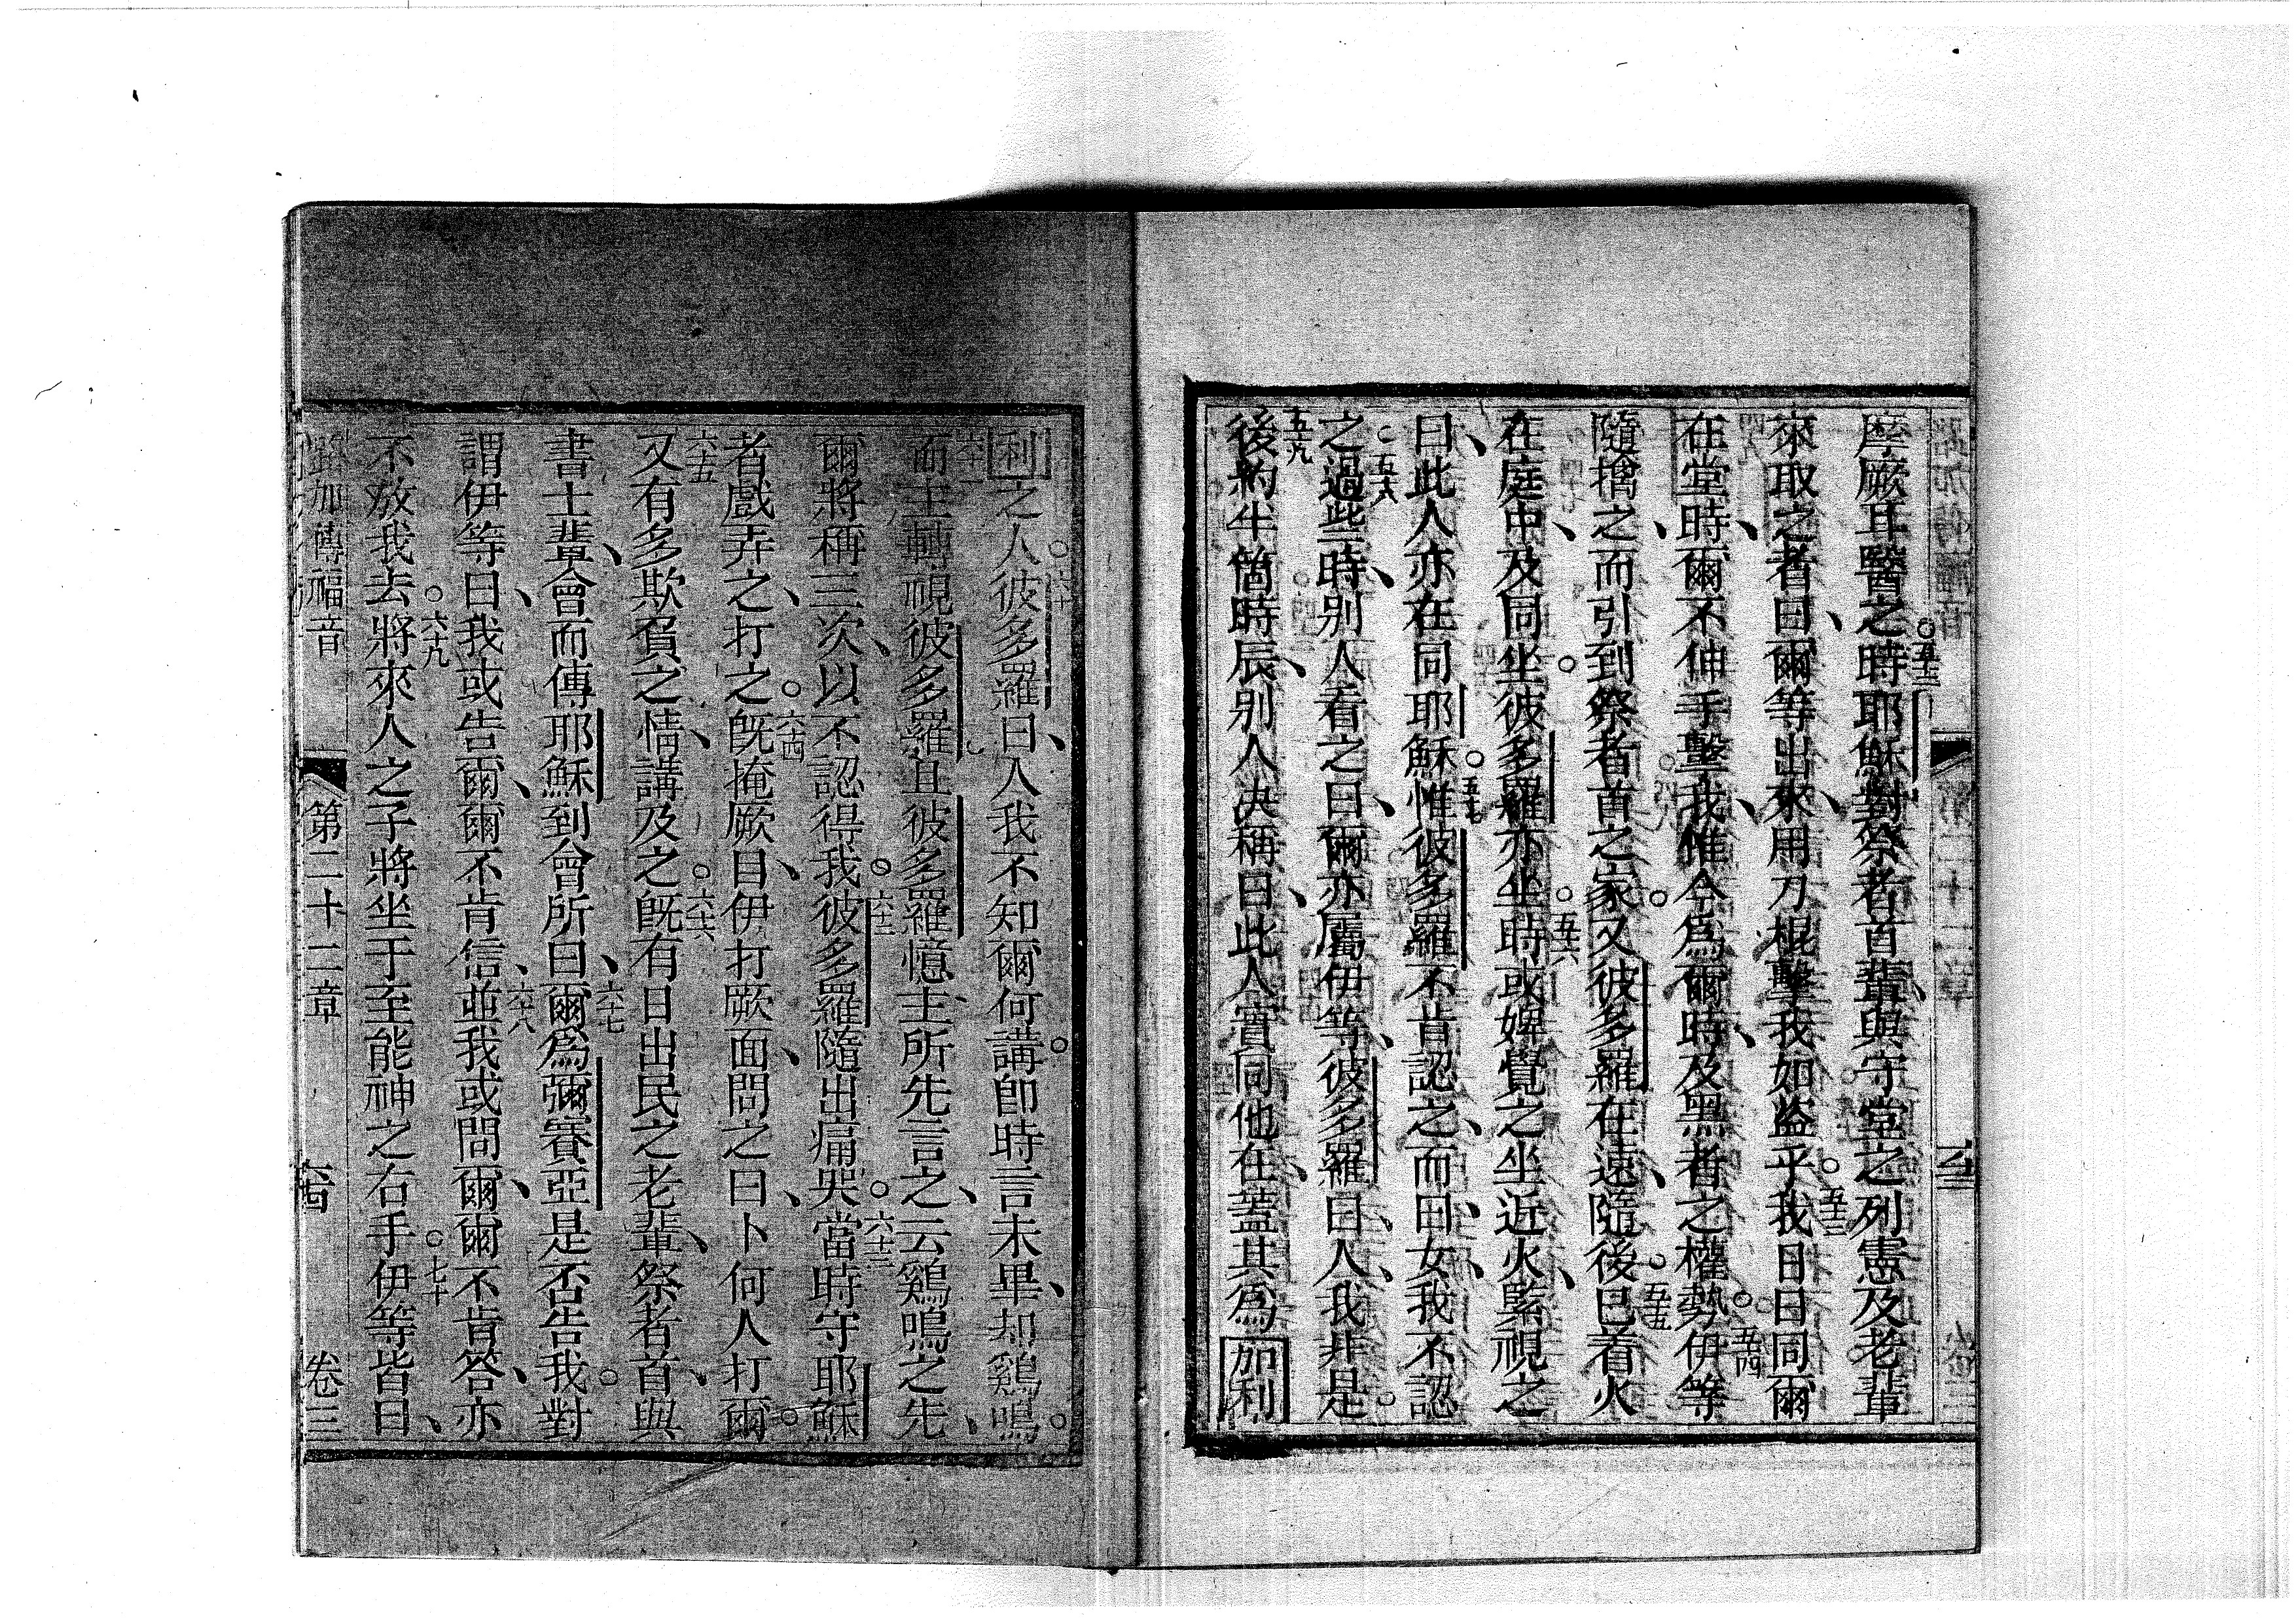 摩厥耳醫之時○五十二耶穌對祭者首輩、與守堂之列憲及老輩
來取之者、曰爾等出來、用刀棍擊我如盜乎○五十三我日日同爾
在堂時、爾不伸手擊我、惟今爲爾時、及黑者之權勢○五十四伊等
隨擒之、而引到祭者首之家○又彼多羅在遠、隨後○五十五已着火
在庭中、及同坐○彼多羅亦坐○五十六時或婢覺之坐近火、緊視之
曰、此人亦在同耶穌○五十七惟彼多羅不肯認之、而曰、女、我不認
之○五十八過些時、別人看之曰、爾亦屬伊等、彼多羅曰、人、我非是○
五十九後約半箇時辰、別人決稱曰、此人實同他在、蓋其爲加利
利之人○六十彼多羅曰、人我不知爾何講○卽時言未畢、却鷄鳴○
六十一而主轉視彼多羅、且彼多羅憶主所先言之、云鷄鳴之先、
爾將稱三次、以不認得我○六十二彼多羅隨出痛哭○六十三當時守耶穌
者戲弄之、打之○六十四旣掩厥目、伊打厥面、問之曰、卜何人打爾○
六十五又有多欺負之情、講及之○六十六旣有日出、民之老輩、祭者首、與
書士輩、會而傳耶穌到會所、曰、六十七爾爲彌賽亞是否、告我○對
謂伊等曰、我或告爾、爾不肯信、六十八並我或問爾、爾不肯答、亦
不放我去○六十九將來人之子將坐于至能神之右手○七十伊等皆曰、
路加傳福音　第二十二章　六十四　卷三